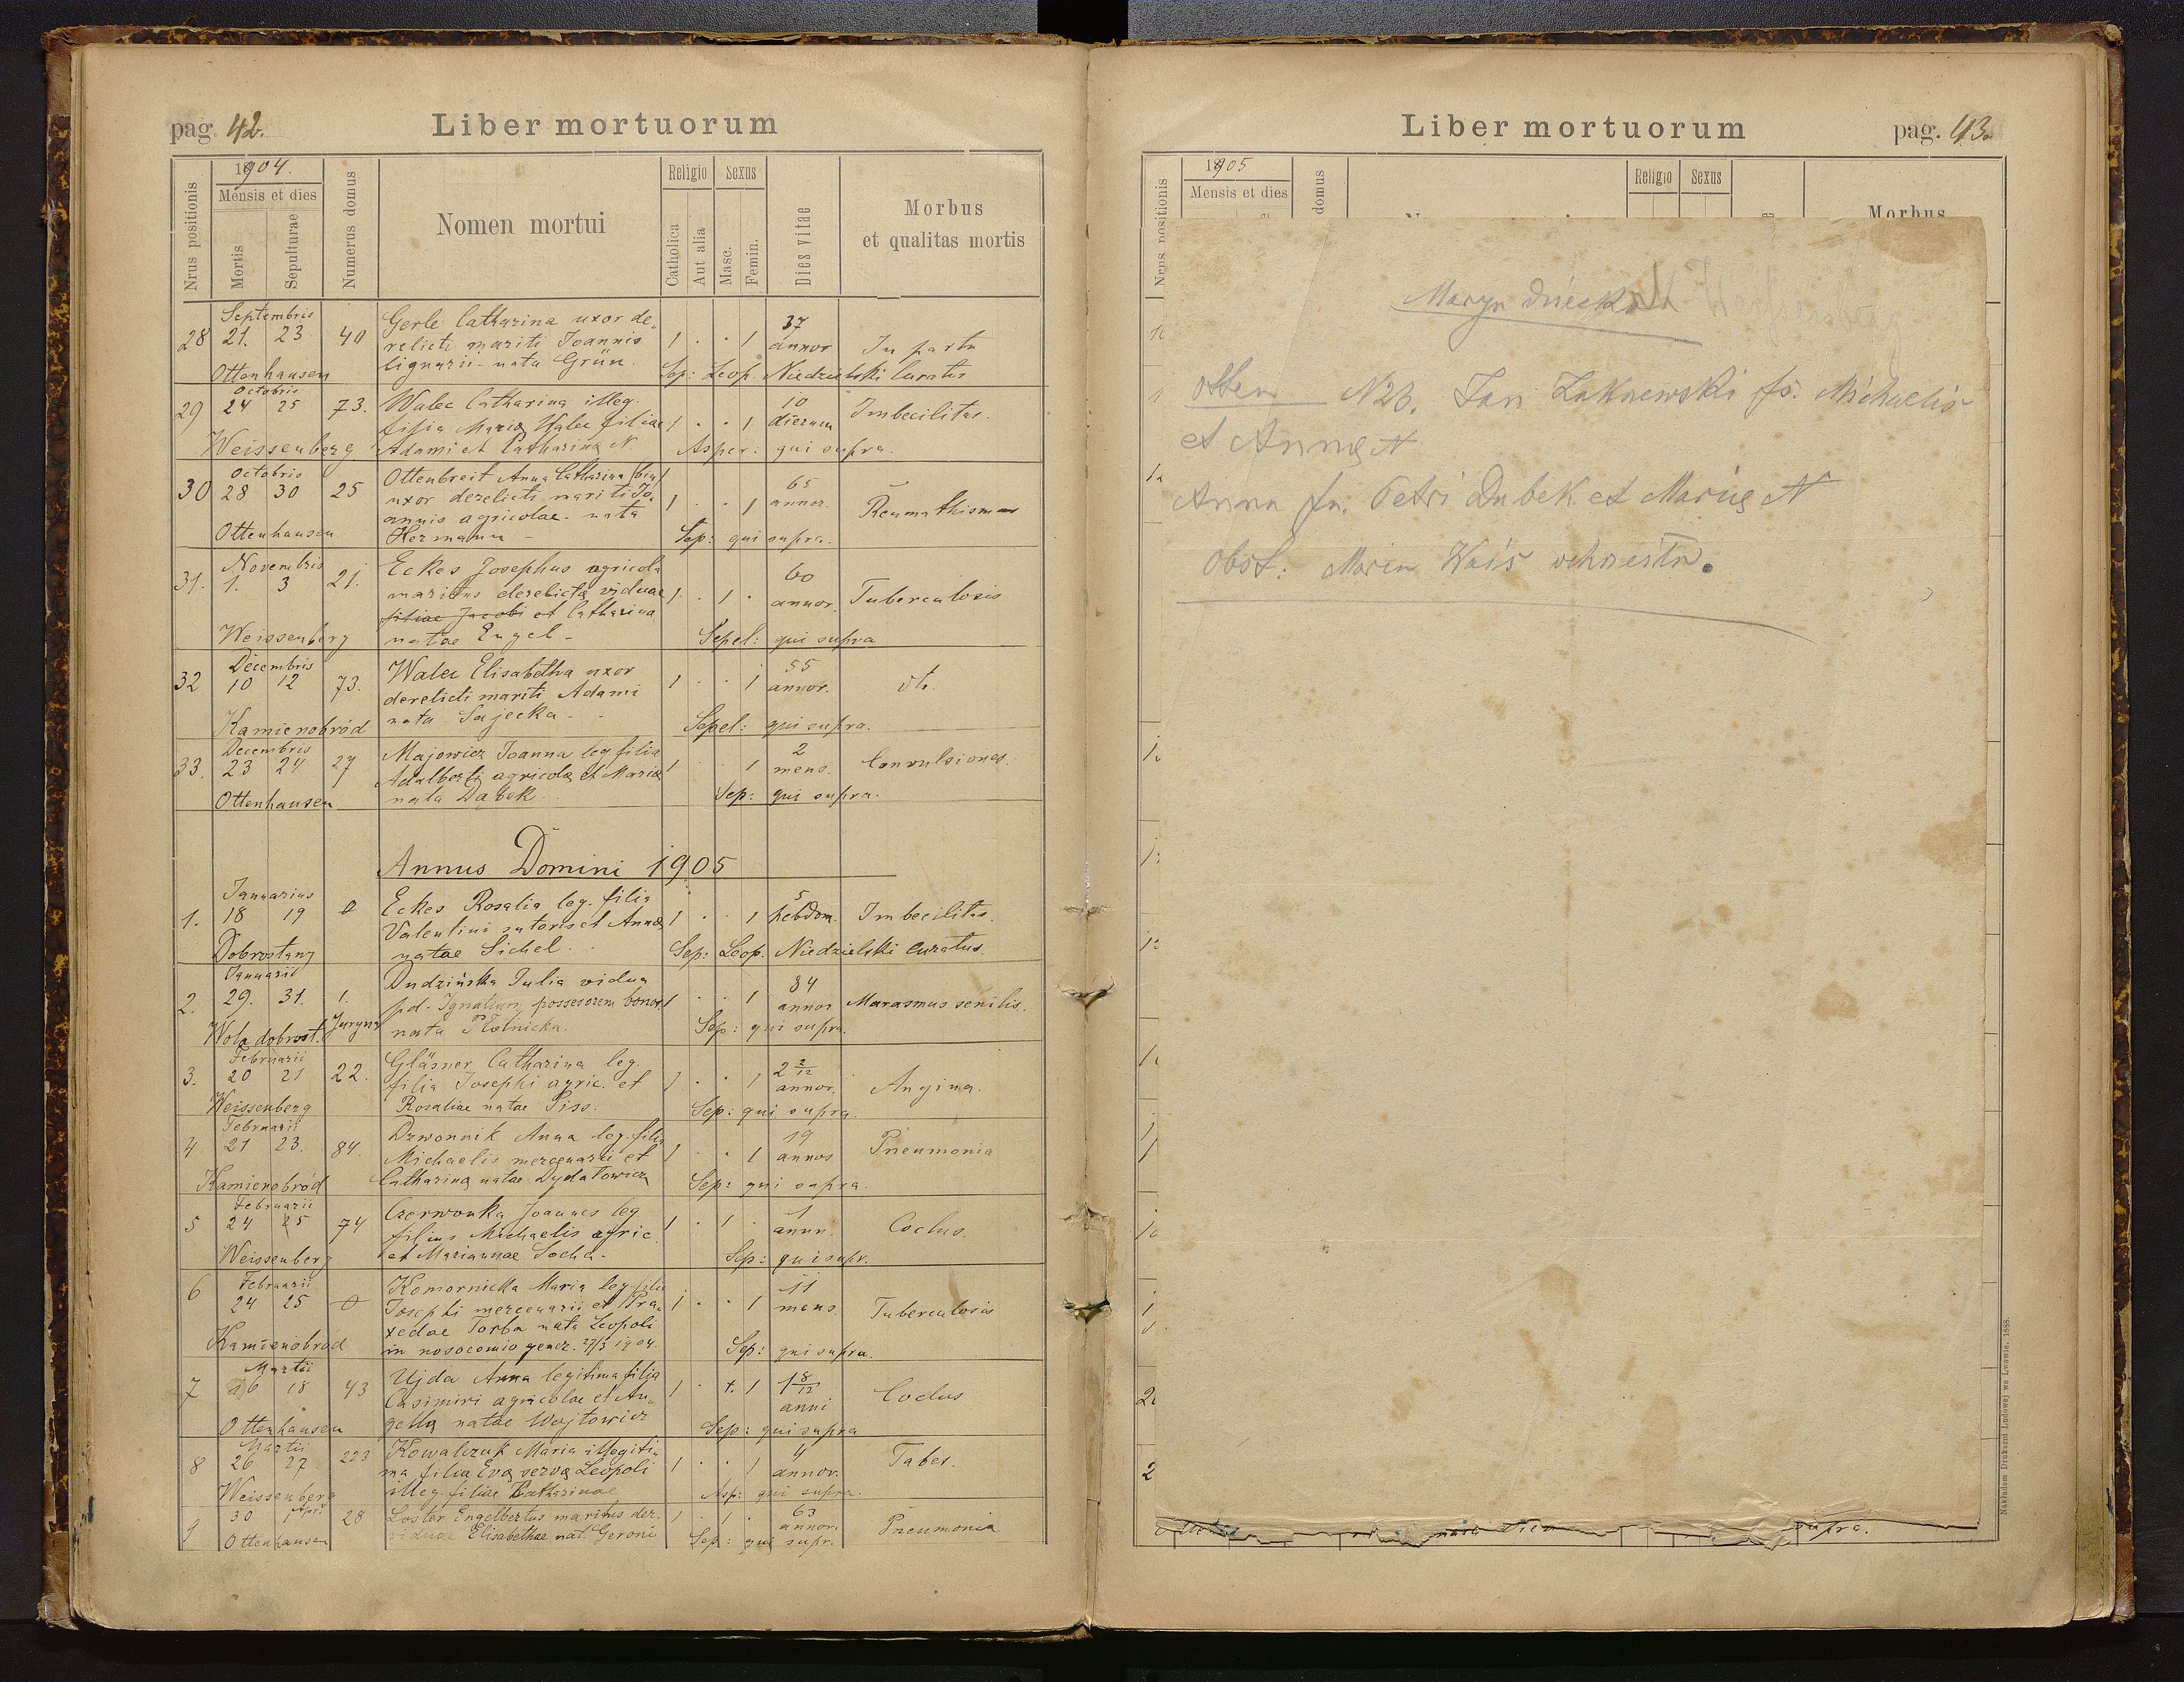 pag. 42.
Liber mortuorum
Nrus positionis
1904.
Mensis et dies
Mortis
Sepulturae
Numerus domus
Nomen mortui
Religio
Catholica
Aut alia
Sexus
Masc.
Femin.
Dies vitae
Morbus
et qualitas mortis
Septembris
28 21. 23 40 Gerle Catharina uxor de„ 1 . . 1 37
relicti mariti Joannis annor In partu
Ottenhausen lignarii - nata Grün. Sep: Leop. Niedzielski Curatus
Octobris
29 24 25 73. Walec Catharina illeg. 10 Imbecilitas.
filia Mariæ Walec filiae 1 . . 1 dierum
Weissenberg Adami et Catharinæ N. Asper: qui supra.
Octobris
30 28 30 25 Ottenbreit Anna Catharina
uxor derelicti mariti Jo„ 1 . . 1 65 annor. Reumathismus
annis agricolae - nata
Ottenhausen Hermann - Sep: qui supra.
Novembris
31. 1. 3 21. Eckes Josephus agricola 60
maritus derelictæ viduae 1 . 1 . annor. Tuberculosis
filiae Jacobi et Catharina
Weissenberg natae Engel - Sepel: qui supra
Decembris
32 10 12 73. Walec Elisabetha uxor 55
derelicti mariti Adami 1 . . 1 annor. dto.
Kamienobród nata Sajecka - Sepel: qui supra.
Decembris
33. 23 24 27 Majowicz Joanna leg. filia 2
Adalberti agricolæ et Mariæ 1 . . 1 mens. Convulsiones.
Ottenhausen nata Dabek . Sep: qui supra.
Annus Domini 1905
Januarius
1. 18 19 0 Eckes Rosalia leg. filia 5
Valentini sutoris et Annæ 1 . . 1 hebdom. Imbecilitas.
Dobrostany natae Sichel . Sep: Leop. Niedzielski Curatus.
Januarii
2. 29. 31. 1. Dudzińska Julia vidua 84
pd. Ignatium possesorem bonor. 1 . . 1 annor Marasmus senilis.
Wola dobrost. Juryna nata Płotnicka. Sep: qui supra.
Februarii
3. 20 21 22. Gläsner Catharina leg. 2 2/12
filia Josephi agric. et 1 . . 1 annor. Angina.
Weissenberg Rosaliae natae Piss. Sep: qui supra.
Februarii
4 21 23. 84. Dzwonnik Anna leg. filia 19
Michaelis mercenarii et 1 . . 1 annos Pneumonia
Kamienobród Catharinæ natae Dydatowicz Sep: qui supra.
Februarii
5 24 25 74 Czerwonka Joannes leg 1
filius Michaelis agric. 1 . 1 . annn. Coclus.
Weissenberg et Mariannae Socha. Sep: qui supr.
6 Februarii Komornicka Maria leg. filia 11
24 25 0 Josephi mercenarii et Pra„ 1 . . 1 mens. Tuberculosis
xedae Torba nata Leopoli
Kamienobród in nosocomio gener. 27/3 1904. Sep: qui supra.
Martii
7 16 18 43 Ujda Anna legitima filia 1 8/12
Casimiri agricolae et An„ 1 . . 1 anni Coclus
Ottenhausen gelæ natae Wojtowicz Sep: qui supra
Martii
8 26 27 223 Kowalczuk Maria illegiti„ 4 Tabes.
ma filia Evæ servæ Leopoli 1 . . 1 annor.
Weissenberg illeg. filiae Catharinae Asp: qui supra.
9 30 1 Apr. 28 Loster Engelbertus maritus der. 1 . 1 . 63 annor. Pneumonia
Ottenhausen viduae Elisabethae nat. Geroni Sep: qui supr.
Liber mortuorum
pag. 43.
Nrus positionis
1905
Mensis et dies
domus
Religio
Sexus
Morbus
Marya
Otten N23. Jan Łakniewski fs. Michaelis
et Annæ N
Anna fa. Petri Dubek et Mariæ N
Obst: Maria Wais
supra.
Nakładem Drukarni Ludowej we Lwowie. 1888.